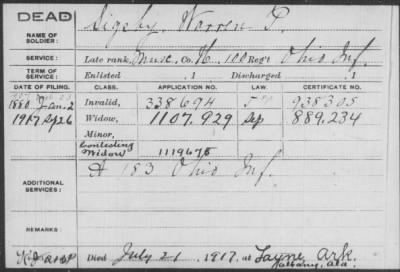 DEAD
NAME OF SOLDIER: Sigsby, Warren P.
SERVICE: Late rank, Musc, Co. H, 100 Reg't Ohio Inf.
TERM OF SERVICE: Enlisted , 1 Discharged , 1
DATE OF FILING. CLASS. APPLICATION NO. LAW. CERTIFICATE NO.
1880 Jan. 2 Invalid, 338694 938305
1917 Sep 26 Widow, 1107.929 Sep 889.234
Minor,
Contesting Widow 1119675
ADDITIONAL SERVICES: A 183 Ohio Inf.
REMARKS:
Died July 21, 1917, at Layne Ark.
Ala.